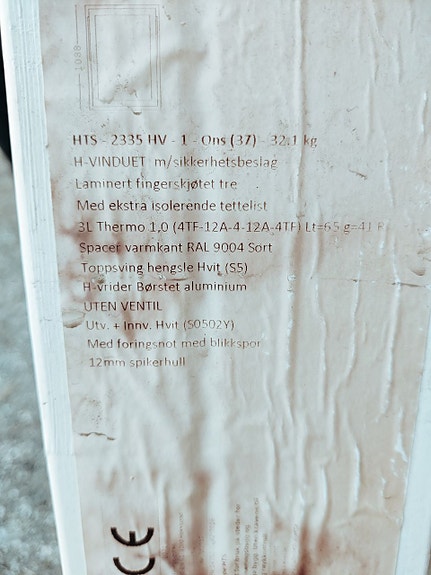 1088
HTS - 2335 HV - 1 - Ons (37) - 32.1 kg
H-VINDUET m/sikkerhetsbeslag
Laminert fingerskjøtet tre
Med ekstra isolerende tettelist
3L Thermo 1,0 (4TF-12A-4-12A-4TF) Lt=65 g=41
Spacer varmkant RAL 9004 Sort
Toppsving hengsle Hvit (S5)
H-vrider Børstet aluminium
UTEN VENTIL
Utv. + Innv. Hvit (S0502Y)
Med foringsnot med blikkspor
12mm spikerhull
CE